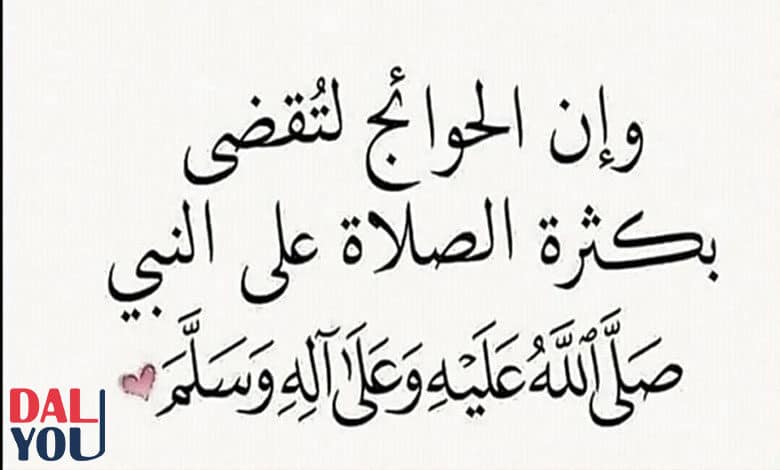 وإن الحوائج لتُقضى
بكثرة الصلاة على النبي
صَلَّى ٱللَّهُ عَلَيْهِ وَعَلَىٰ آلِهِ وَسَلَّمَ
DAL
YOU